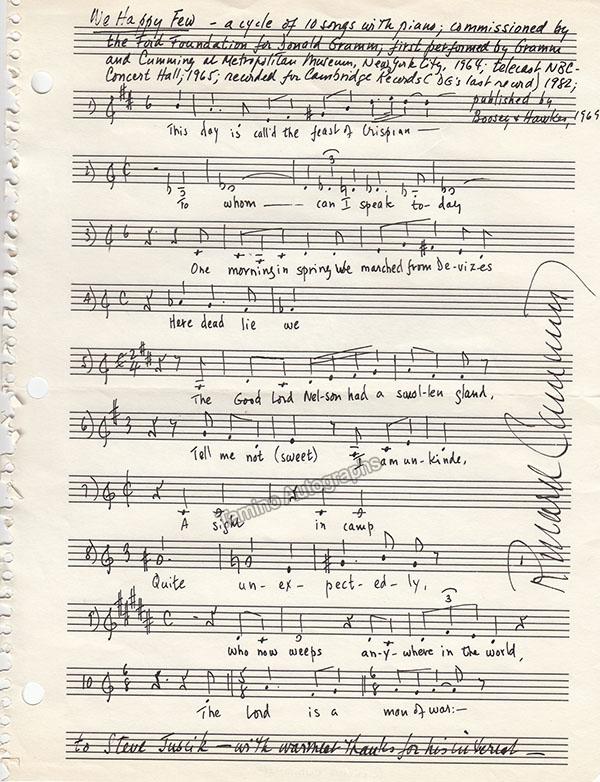 We Happy Few - a cycle of 10 songs with piano; commissioned by
the Ford Foundation for Donald Gramm, first performed by Gramm
and Cumming at Metropolitan Museum, New York City, 1964; telecast NBC-
Concert Hall, 1965; recorded for Cambridge Records (DG's last record) 1982;
published by
Boosey & Hawkes, 1969
1)
This day is call'd the feast of Crispian —
2)
To whom — can I speak to-day
3)
One morning in spring We marched from De-viz-es
4)
Here dead lie we
5)
The Good Lord Nel-son had a swol-len gland,
6)
Tell me not (sweet) I am un-kinde,
7)
A sight in camp
8)
Quite un-ex-pect-ed-ly,
9)
who now weeps an-y-where in the world,
10
The Lord is a man of war:—
to Steve — with warmest thanks for his interest —
Richard Cumming
Tamino Autographs